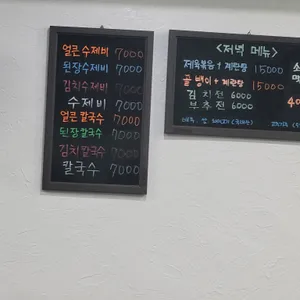 얼큰수제비 7000
된장수제비 7000
김치수제비 7000
수제비 7000
얼큰칼국수 7000
된장칼국수 7000
김치칼국수 7000
칼국수 7000
<저녁 메뉴>
제육볶음 + 계란탕 15000
골뱅이 + 계란탕 15000
김치전 6000
부추전 6000